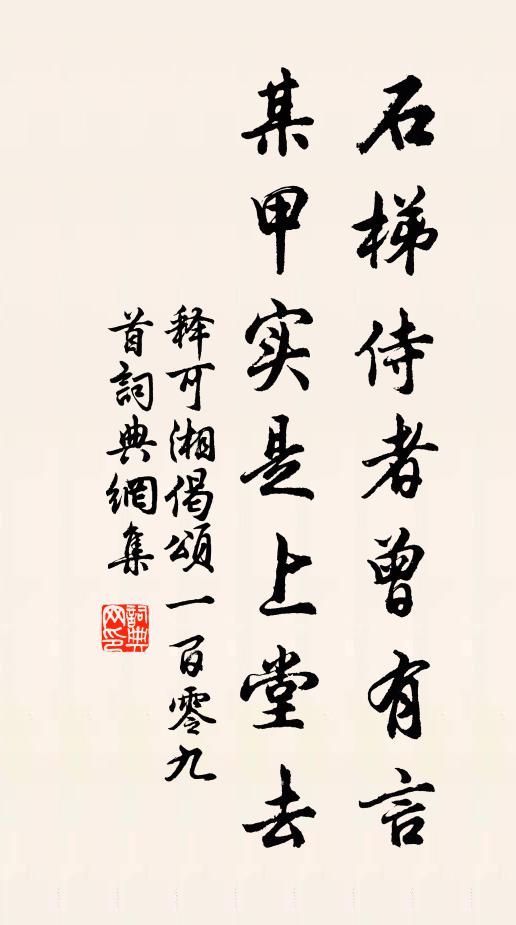 石梯侍者曾有言
某甲实是上堂去
释可湘偈頌一百零九
首詞典網集
詞典
网印